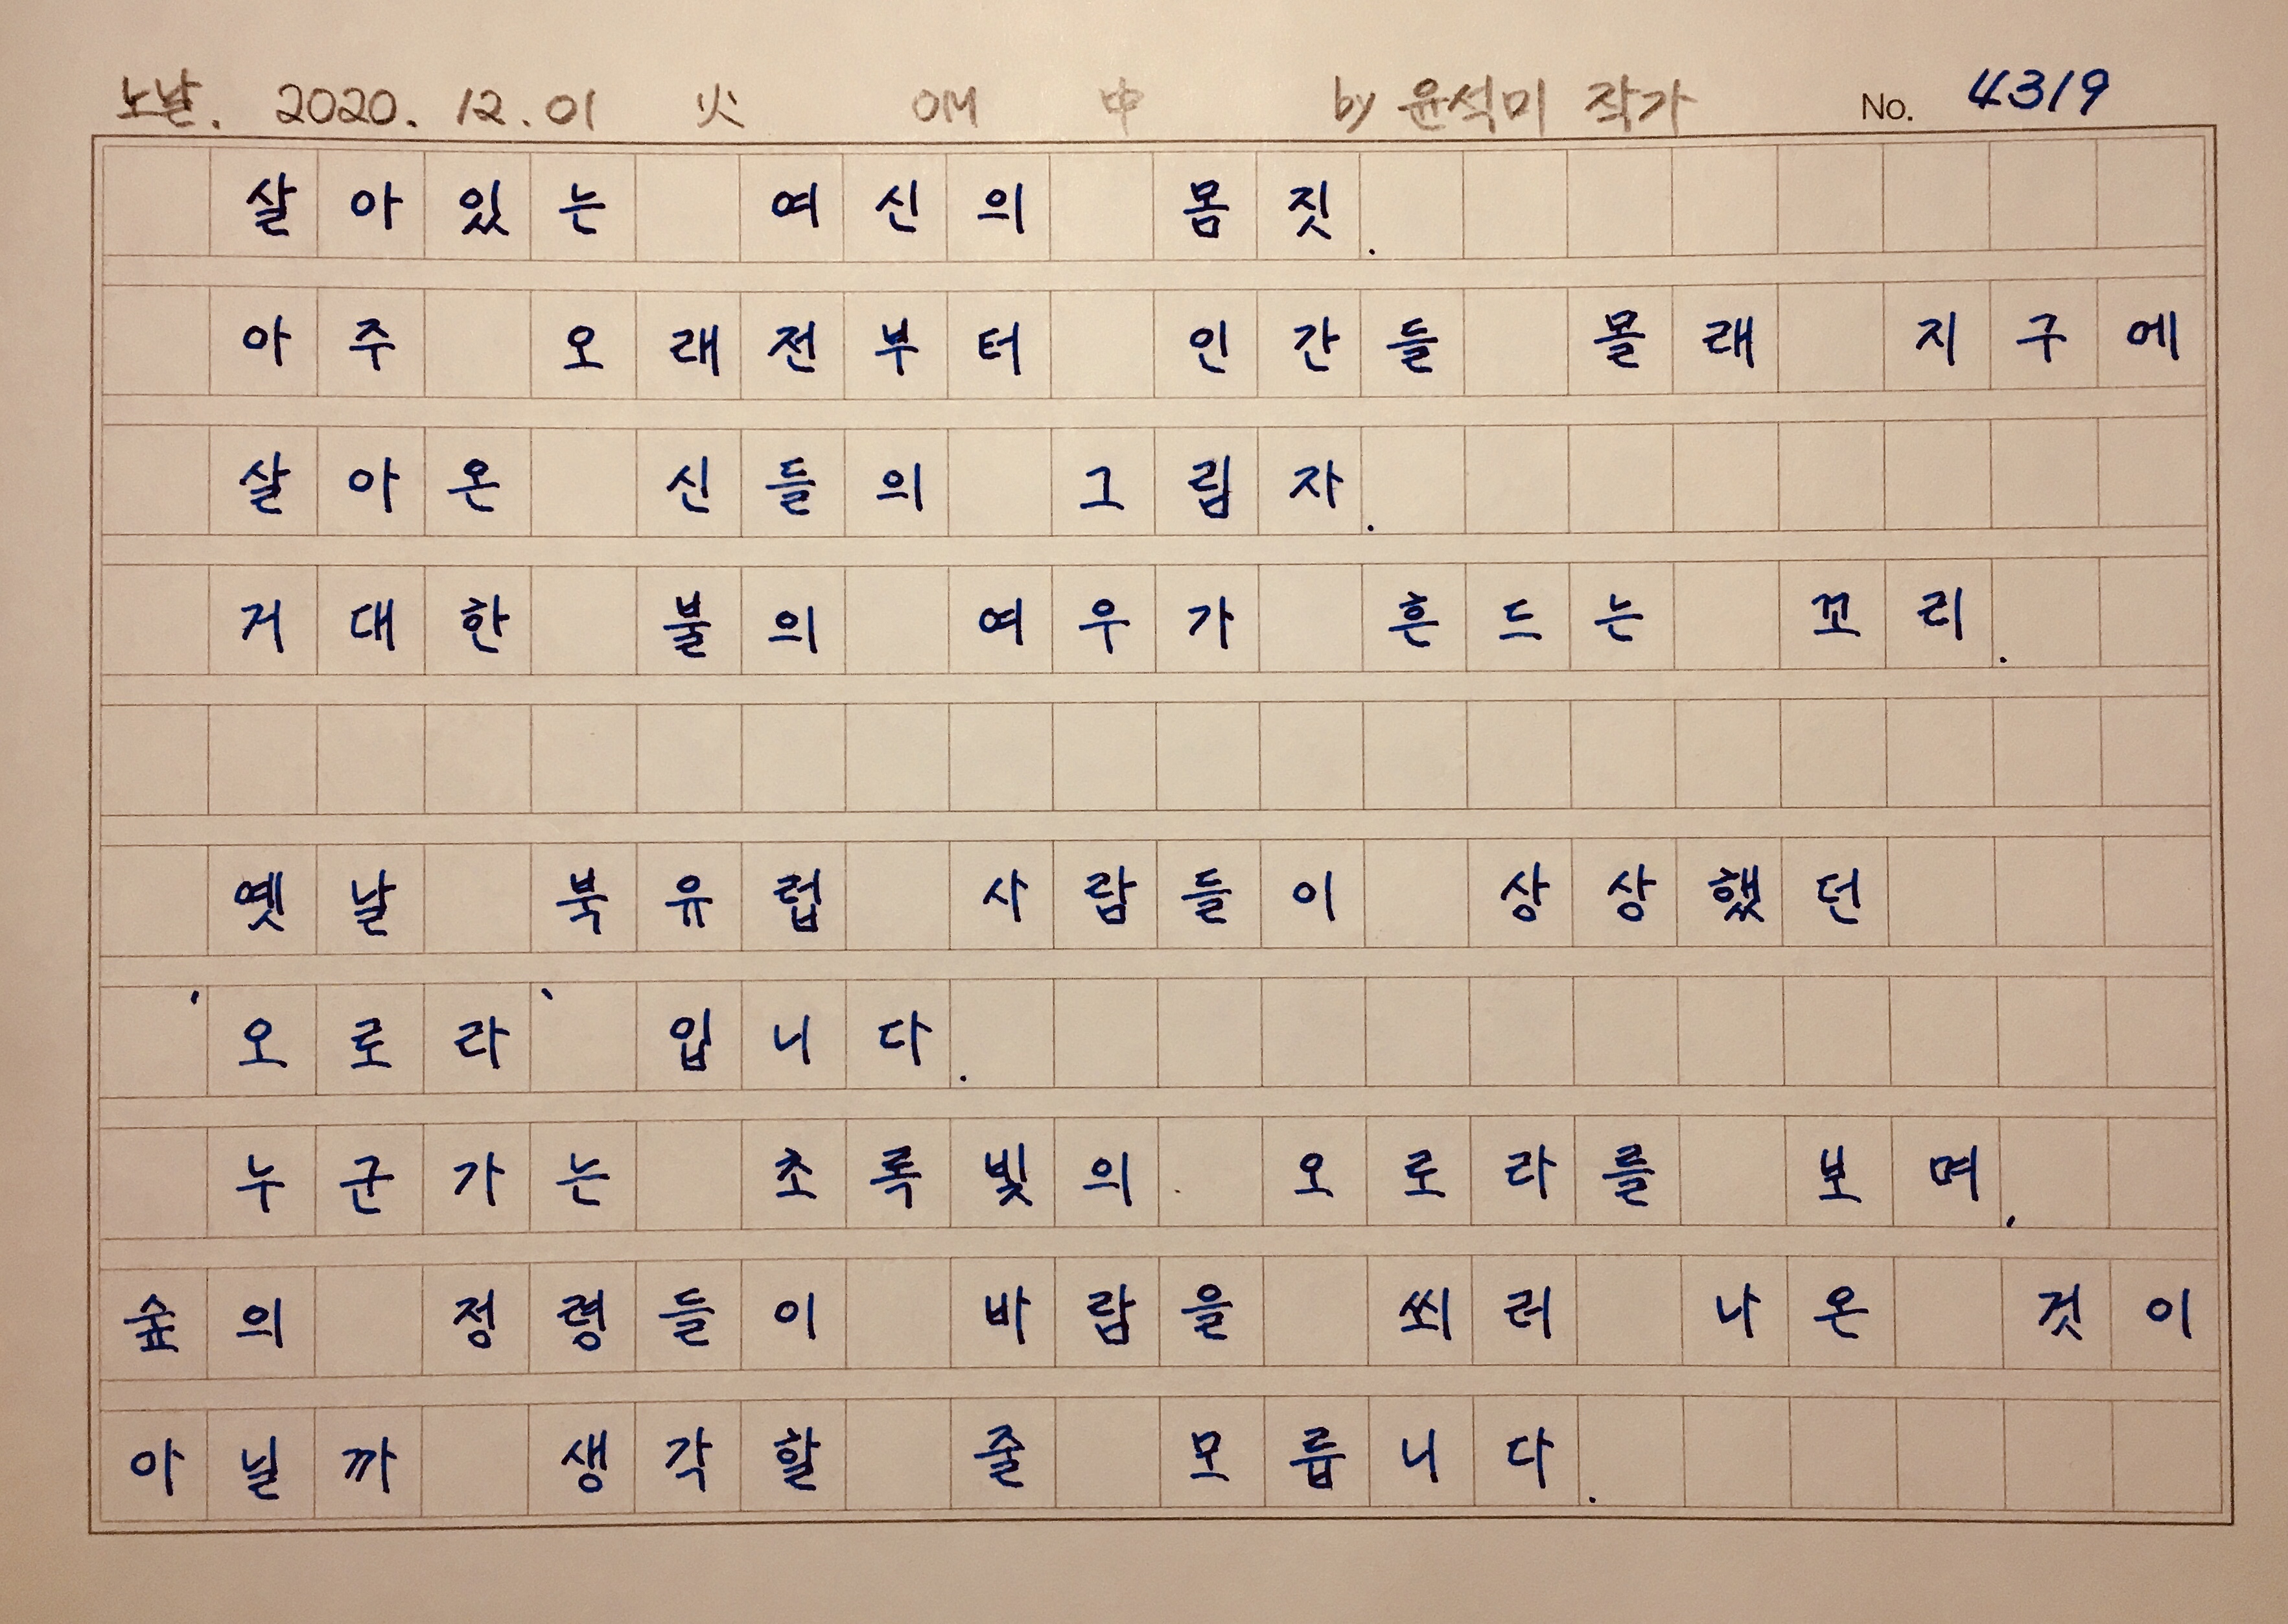 노날. 2020. 12. 01 火 OM 中 by 윤석미 작가 No. 4319
살아있는 여신의 몸짓.
아주 오래전부터 인간들 몰래 지구에
살아온 신들의 그림자.
거대한 불의 여우가 흔드는 꼬리.
옛날 북유럽 사람들이 상상했던
'오로라' 입니다.
누군가는 초록빛의 오로라를 보며,
숲의 정령들이 바람을 쐬러 나온 것이
아닐까 생각할 줄 모릅니다.